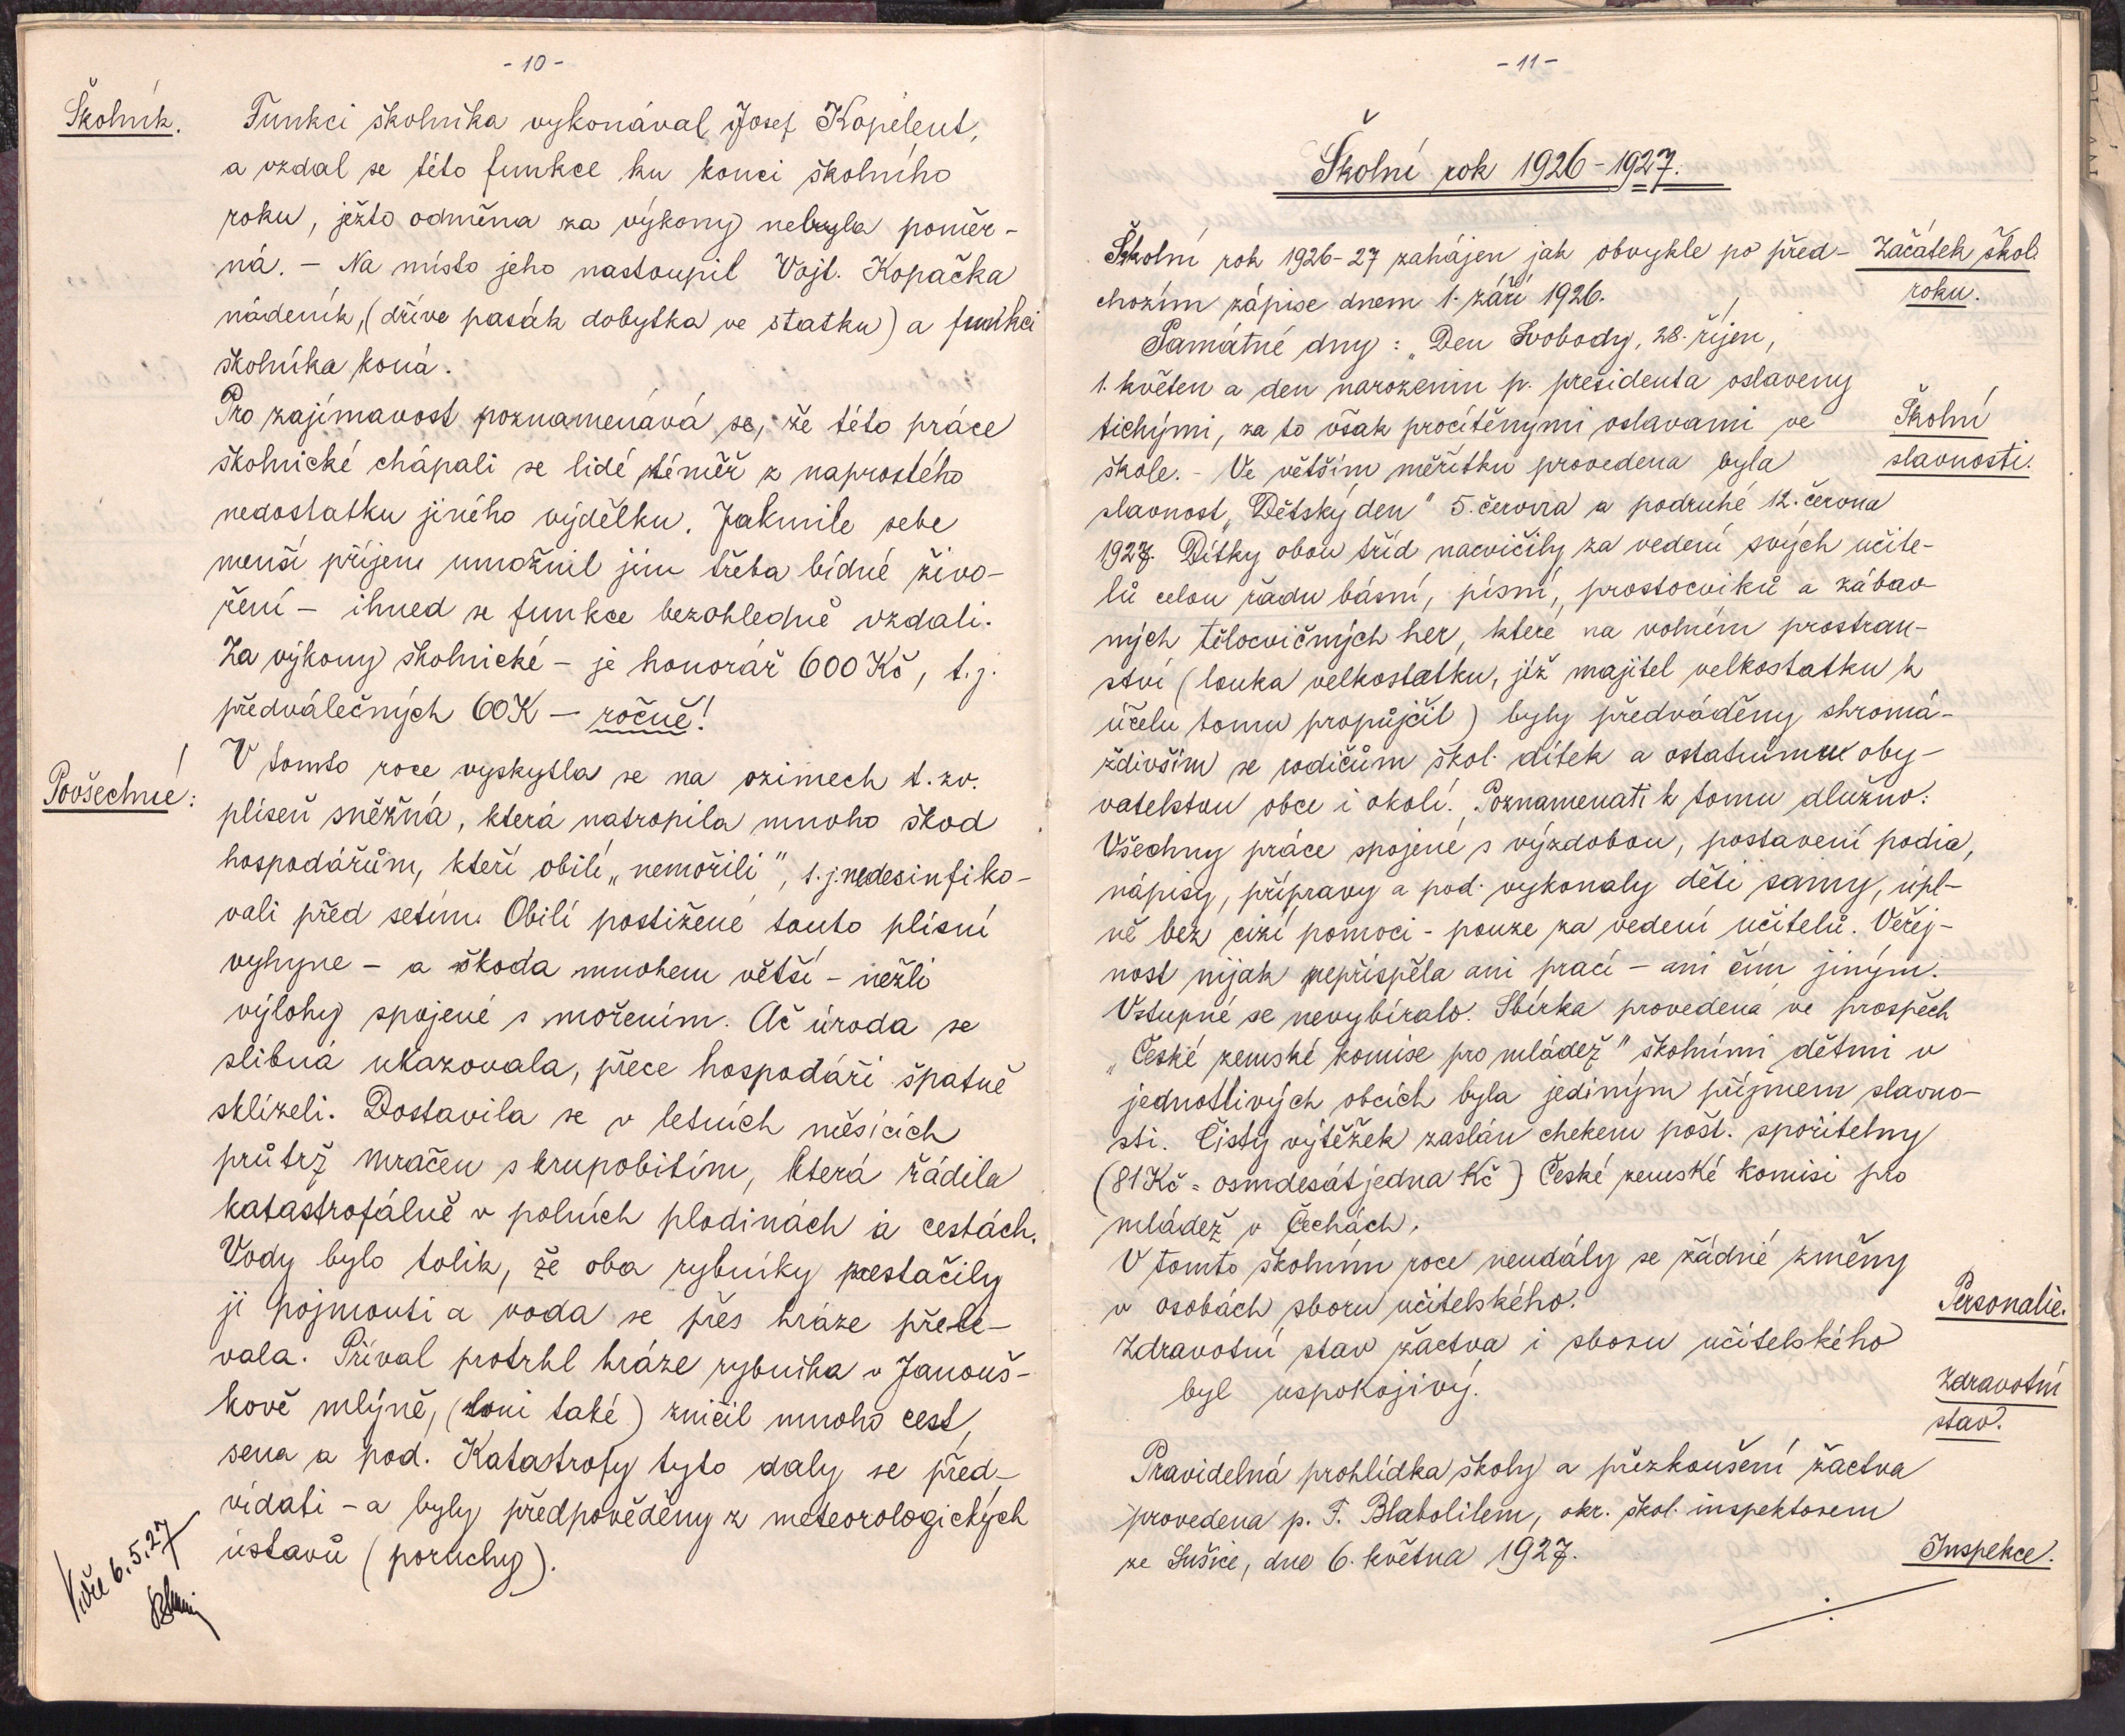 - 10 -
Školník.
Funkci školníka vykonával Josef Kopelent,
a vzdal se této funkce ku konci školního
roku, ježto odměna za výkony nebyla poměr-
ná. - Na místo jeho nastoupil Vojt. Kopačka
nádeník, (dříve pasák dobytka ve statku) a funkci
školníka koná.
Pro zajímavost poznamenává se, že této práce
školnické chápali se lidé téměř z naprostého
nedostatku jiného výdělku. Jakmile sebe
menší příjem umožnil jim třeba bídné živo-
ření - ihned se funkce bezohledně vzdali.
Za výkony školnické - je honorář 600 Kč, t.j.
předválečných 60 K - ročně!
Povšechné:
V tomto roce vyskytla se na ozimech t. zv.
plíseň sněžná, která natropila mnoho škod
hospodářům, kteří obilí „nemořili", t.j. nedesinfiko-
vali před setím. Obilí postižené touto plísní
vyhyne - a škoda mnohem větší - nežli
výlohy spojené s mořením. Ač úroda se
slibná ukazovala, přece hospodáři špatně
sklízeli. Dostavila se v letních měsících
průtrž mračen s krupobitím, která řádila
katastrofálně v polních plodinách a cestách.
Vody bylo tolik, že oba rybníky nestačily
ji pojmouti a voda se přes hráze přelé-
vala. Příval protrhl hráze rybníka v Janouš-
kově mlýně, (loni také) zničil mnoho cest,
sena a pod. Katastrofy tyto daly se před-
vídati - a byly předpověděny z meteorologických
ústavů (poruchy).
6.5.27
- 11 -
Školní rok 1926 - 1927.
Školní rok 1926-27 zahájen jak obvykle po před-
chozím zápise dnem 1. září 1926.
Začátek škol.
roku.
Památné dny: „Den Svobody, 28. říjen,
1. květen a den narozenin p. presidenta oslaveny
tichými, za to však procítěnými oslavami ve
škole. - Ve větším měřítku provedena byla
Školní
slavnosti.
slavnost „Dětský den" 5. června a podruhé 12. června
1927. Dítky obou tříd nacvičily za vedení svých učite-
lů celou řadu básní, písní, prostocviků a zábav-
ných tělocvičných her, které na volném prostran-
ství (louka velkostatku, již majitel velkostatku k
účelu tomu propůjčil) byly předváděny shromá-
ždivším se rodičům škol. dítek a ostatnímu oby-
vatelstvu obce i okolí. Poznamenati k tomu dlužno:
Všechny práce spojené s výzdobou, postavení podia,
nápisy, přípravy a pod. vykonaly děti samy, úpl-
ně bez cizí pomoci - pouze za vedení učitelů. Veřej-
nost nijak nepřispěla ani prací - ani čím jiným.
Vstupné se nevybíralo. Sbírka provedena ve prospěch
„České zemské komise pro mládež" školními dětmi v
jednotlivých obcích byla jediným příjmem slavno-
sti. Čistý výtěžek zaslán chekem pošt. spořitelny
(81 Kč = osmdesátjedna Kč) České zemské komisi pro
mládež v Čechách.
V tomto školním roce neudály se žádné změny
v osobách sboru učitelského.
Personalie.
Zdravotní stav žactva i sboru učitelského
byl uspokojivý.
Zdravotní
stav.
Pravidelná prohlídka školy a přezkoušení žactva
provedena p. F. Blabolilem, okr. škol. inspektorem
ze Sušice, dne 6. května 1927.
Inspekce.